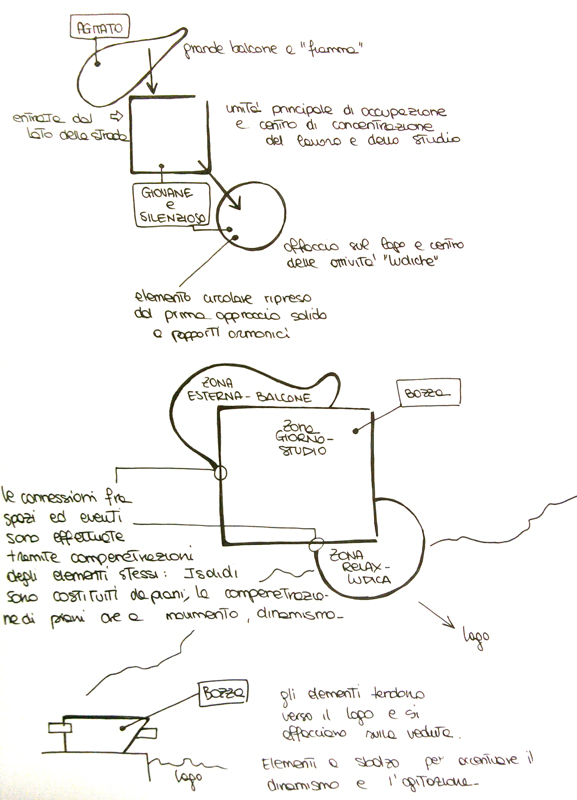 AGITATO
grande balcone a "fiamma"
entrata dal
lato della strada
unità principale di occupazione
e centro di concentrazione
del lavoro e dello studio
GIOVANE
e
SILENZIOSO
affaccio sul lago e centro
delle attività "ludiche"
elemento circolare ripreso
dal primo approccio solido
a rapporti armonici
ZONA
ESTERNA-BALCONE
BOZZA
ZONA
GIORNO-
STUDIO
le connessioni fra
spazi ed eventi
sono effettuate
tramite compenetrazioni
degli elementi stessi: I solidi
sono costituiti da piani, la compenetrazio-
ne di piani crea movimento, dinamismo-
ZONA
RELAX-
LUDICA
lago
BOZZA
gli elementi tendono
verso il lago e si
affacciano sulla veduta.
Elementi a sbalzo per accentuare il
dinamismo e l'agitazione-
lago